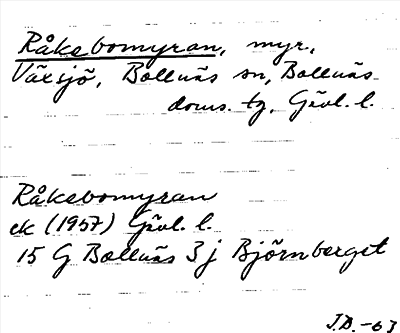 Råkebomyran, myr.,
Växsjö, Bollnäs sn, Bollnäs
doms. tg, Gävl. l.
Råkebomyran
ek (1957) Gävl. l.
15 G Bollnäs 3j Björnberget
J.D. -63